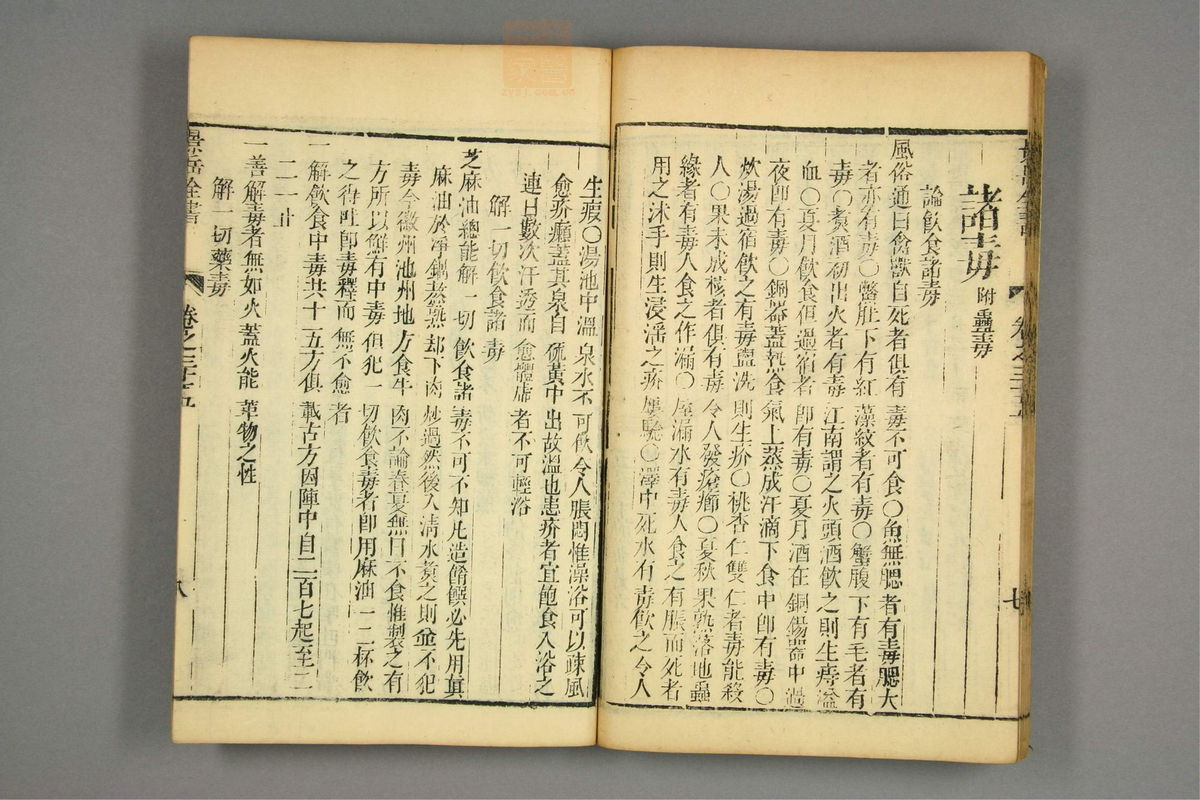 諸毒附蠱毒
論飲食諸毒
風俗通曰禽獸自死者俱有毒不可食○魚無腮者有毒腮大
者亦有毒○鱉肚下有紅藻紋者有毒○蟹腹下有毛者有
毒○煮酒初出火者有毒江南謂之火頭酒飲之則生痔溢
血○夏月飲食但過宿者即有毒○夏月酒在銅錫器中過
夜即有毒○銅器蓋熱食氣上蒸成汗滴下食中即有毒○
炊湯過宿飲之有毒盥洗則生疥○桃杏仁雙仁者毒能殺
人○果未成核者俱有毒令人發瘡癤○夏秋果熟落地蟲
緣者有毒人食之作漏○屋漏水有毒人食之有脹而死者
用之沐手則生浸淫之瘡屢驗○澤中死水有毒飲之令人
生瘕○湯池中溫泉水不可飲令人脹悶惟澡浴可以疎風
愈疥癩蓋其泉自硫黃中出故溫也患疥者宜飽食入浴之
連日數次汗透而愈體虛者不可輕浴
解一切飲食諸毒
芝麻油總能解一切飲食諸毒不可不知凡造餚饌必先用眞
麻油於淨鍋熬熟却下肉炒過然後入清水煮之則並不犯
毒今徽州池州地方食牛肉不論春夏無日不食惟製之有
方所以鮮有中毒但犯一切飲食毒者即用麻油一二杯飲
之得吐即毒釋而無不愈者
一解飲食中毒共十五方俱載古方因陣中自二百七起至二
二一止
一善解毒者無如火蓋火能革物之性
解一切藥毒
景岳全書
卷之三十五
八
卷之三十五
七